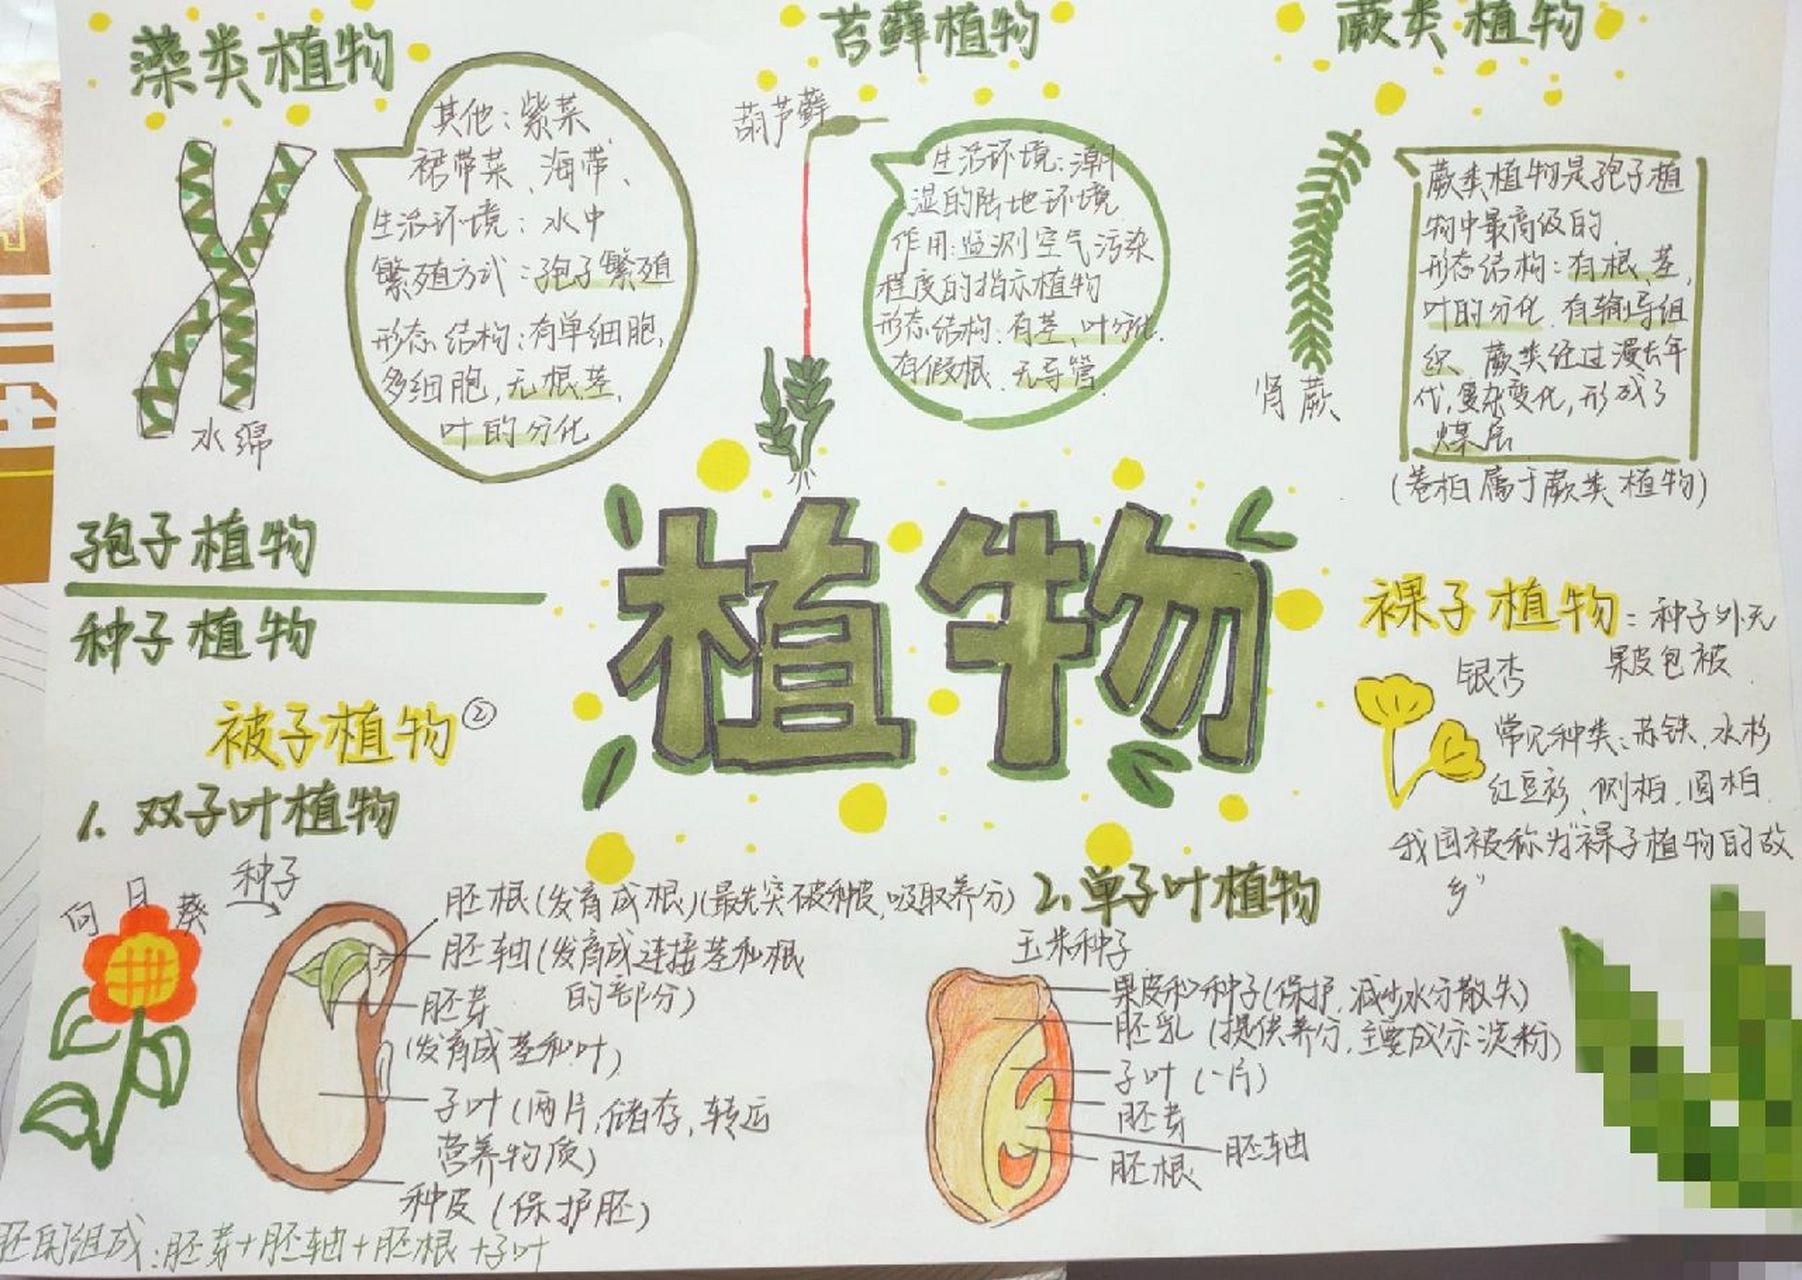 藻类植物
其他：紫菜、
裙带菜、海带、
生活环境：水中
繁殖方式：孢子繁殖
形态结构：有单细胞，
多细胞，无根、茎、
叶的分化
水绵
苔藓植物
葫芦藓
生活环境：潮
湿的陆地环境
作用：监测空气污染
程度的指示植物
形态结构：有茎、叶分化.
有假根、无导管
蕨类植物
蕨类植物是孢子植
物中最高级的
形态结构：有根、茎、
叶的分化、有输导组
织、蕨类经过漫长年
代，复杂变化，形成了
煤层
肾蕨
(卷柏属于蕨类植物)
孢子植物
种子植物
植物
裸子植物：种子外无
果皮包被.
银杏
常见种类：苏铁、水杉
红豆衫、侧柏、圆柏
我国被称为"裸子植物的故
乡"
被子植物②
1. 双子叶植物
种子
向日葵
胚根(发育成根)(最先突破种皮，吸取养分)
胚轴(发育成连接茎和根
的部分)
胚芽
(发育成茎和叶)
子叶(两片，储存，转运
营养物质)
种皮(保护胚)
胚的组成：胚芽+胚轴+胚根+子叶
2.单子叶植物
玉米种子
果皮和种子(保护，减少水分散失)
胚乳(提供养分，主要成分淀粉)
子叶(一片)
胚芽
胚轴
胚根